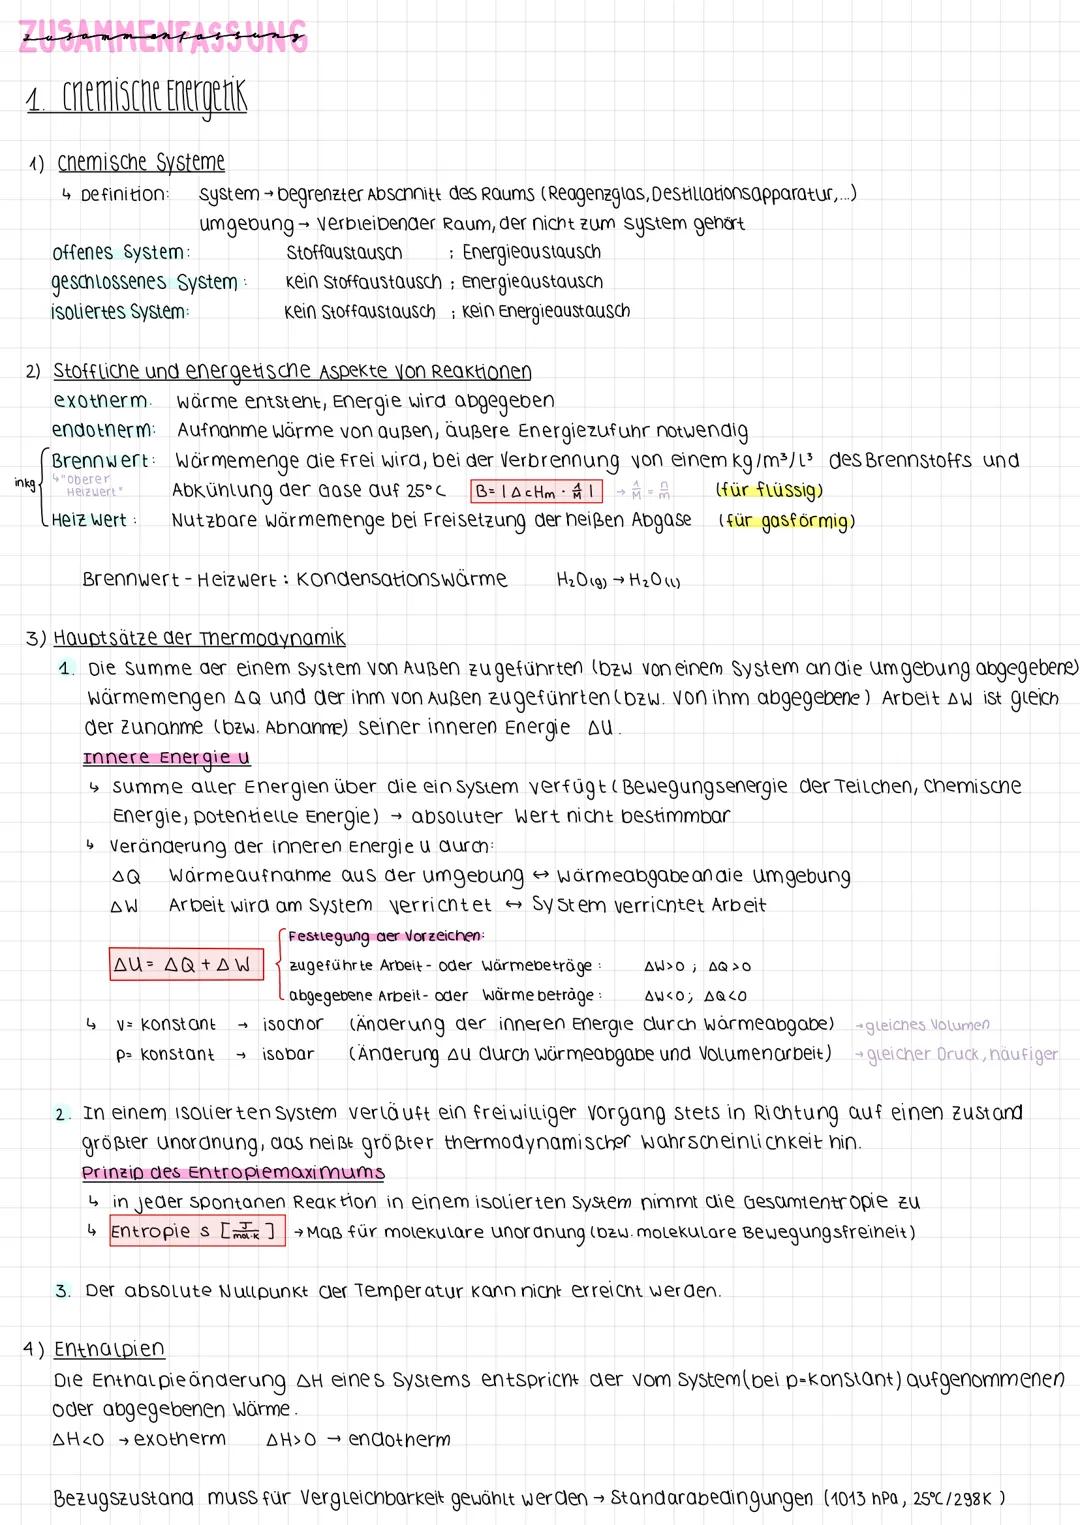 ZUSAMMENFASSUNG
zusammenfassung
1. Chemische Energetik
1) Chemische Systeme
↳ Definition: System → begrenzter Abschnitt des Raums (Reagenzglas, Destillationsapparatur,...)
Umgebung → Verbleibender Raum, der nicht zum System gehört
offenes System: Stoffaustausch ; Energieaustausch
geschlossenes System: Kein Stoffaustausch ; Energieaustausch
isoliertes System: Kein Stoffaustausch ; Kein Energieaustausch
2) Stoffliche und energetische Aspekte von Reaktionen
exotherm: Wärme entsteht, Energie wird abgegeben
endotherm: Aufnahme Wärme von außen, äußere Energiezufuhr notwendig
Brennwert: Wärmemenge die frei wird, bei der Verbrennung von einem kg/m³/l³ des Brennstoffs und
in kg ↳ "oberer Heizwert" Abkühlung der Gase auf 25°C B = |ΔcHm · 1/M| → 1/M = n/m (für flüssig)
Heizwert: Nutzbare Wärmemenge bei Freisetzung der heißen Abgase (für gasförmig)
Brennwert - Heizwert: Kondensationswärme H₂O(g) → H₂O(l)
3) Hauptsätze der Thermodynamik
1. Die Summe der einem System von Außen zugeführten (bzw von einem System an die Umgebung abgegebene)
Wärmemengen ΔQ und der ihm von Außen zugeführten (bzw. von ihm abgegebene) Arbeit ΔW ist gleich
der Zunahme (bzw. Abnahme) seiner inneren Energie ΔU.
Innere Energie U
↳ Summe aller Energien über die ein System verfügt (Bewegungsenergie der Teilchen, Chemische
Energie, potentielle Energie) → absoluter Wert nicht bestimmbar
↳ Veränderung der inneren Energie U durch:
ΔQ Wärmeaufnahme aus der Umgebung ↔ Wärmeabgabe an die Umgebung
ΔW Arbeit wird am System verrichtet ↔ System verrichtet Arbeit
Festlegung der Vorzeichen:
ΔU = ΔQ + ΔW zugeführte Arbeit- oder Wärmebeträge: ΔW>0 ; ΔQ>0
abgegebene Arbeit- oder Wärmebeträge: ΔW<0; ΔQ<0
↳ V= konstant → isochor (Änderung der inneren Energie durch Wärmeabgabe) → gleiches Volumen
p= konstant → isobar (Änderung ΔU durch Wärmeabgabe und Volumenarbeit) → gleicher Druck, häufiger
2. In einem isolierten System verläuft ein freiwilliger Vorgang stets in Richtung auf einen Zustand
größter Unordnung, das heißt größter thermodynamischer Wahrscheinlichkeit hin.
Prinzip des Entropiemaximums
↳ in jeder spontanen Reaktion in einem isolierten System nimmt die Gesamtentropie zu
↳ Entropie S [J/mol·K] → Maß für molekulare Unordnung (bzw. molekulare Bewegungsfreiheit)
3. Der absolute Nullpunkt der Temperatur kann nicht erreicht werden.
4) Enthalpien
Die Enthalpieänderung ΔH eines Systems entspricht der vom System (bei p=konstant) aufgenommenen
oder abgegebenen Wärme.
ΔH<0 → exotherm ΔH>0 → endotherm
Bezugszustand muss für Vergleichbarkeit gewählt werden → Standardbedingungen (1013 hPa, 25°C/298K)